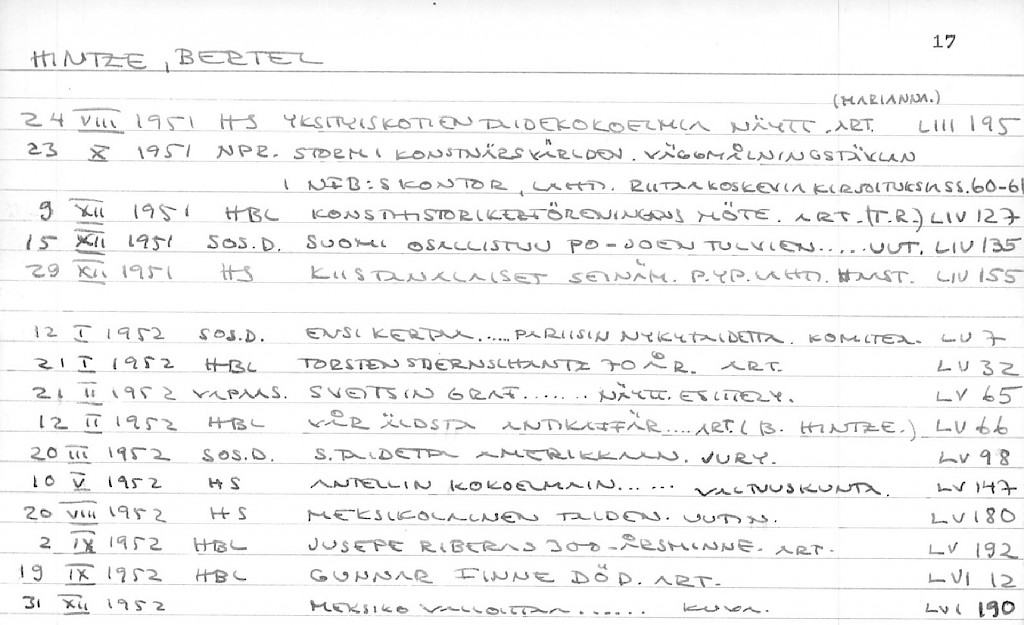 17
HINTZE, BERTEL
(MARIANNA.)
24 VIII 1951 HS YKSITYISKOTIEN TAIDEKOKOELMIA NÄYTT. ART. LIII 195
23 X 1951 NPR. STORM I KONSTNÄRSVÄRLDEN. VÄGGMÅLNINGSTÄVLAN
I NFB:S KONTOR, LAHD. RIITAA KOSKEVIA KIRJOITUKSIA SS. 60-61
9 XII 1951 HBL KONSTHISTORIKERFÖRENINGENS MÖTE. ART. (T.R.) LIV 127
15 XII 1951 SOS.D. SUOMI OSALLISTUU PO-JOEN TULVIEN..... UUT. LIV 135
29 XII 1951 HS KIISTANALAISET SEINÄM. P.YP. LAHD. LIV 155
12 I 1952 SOS.D. ENSI KERTAA..... PARIISIN NYKYTAIDETTA. KOMITEA. LV 7
21 I 1952 HBL TORSTEN STJERNSCHANTZ 70 ÅR. ART. LV 32
21 II 1952 VAPAA S. SVEITSIN GRAF...... NÄYTT. ESITTELY. LV 65
12 II 1952 HBL VÅR ÄLDSTA ANTIKAFFÄR.... ART. (B. HINTZE.) LV 66
20 III 1952 SOS.D. S. TAIDETTA AMERIKKAAN. JURY. LV 98
10 V 1952 HS ANTELLIN KOKOELMAIN...... VALTUUSKUNTA. LV 147
20 VIII 1952 HS MEKSIKOLAINEN TAIDEN. UUTIN. LV 180
2 IX 1952 HBL JUSEPE RIBERAS 300-ÅRSMINNE. ART. LV 192
19 IX 1952 HBL GUNNAR FINNE DÖD. ART. LVI 12
31 XII 1952 MEKSIKO VALLOITTAA...... KUVA. LVI 190